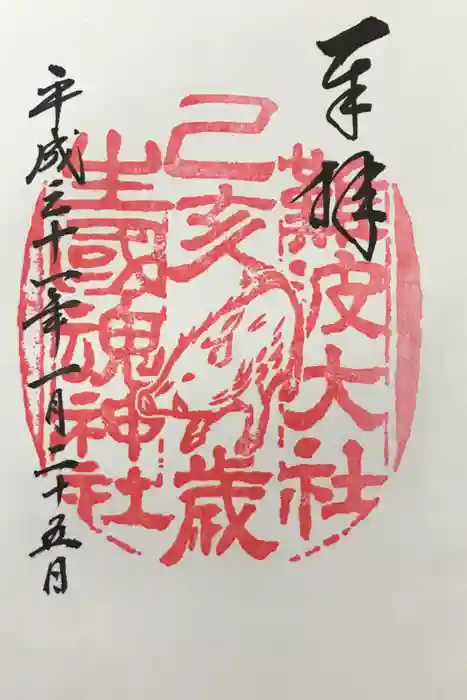 奉拝
難波大社
己亥歳
生國魂神社
平成三十一年一月二十五日